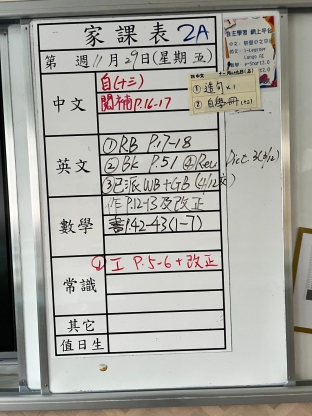 家課表 2A
第 週 11月29日(星期五)
自主學習 網上平台
中文
自(十三)
閱補 P.16-17
① 造句 x1
② 自學冊
英文
① RB P.17-18
② BK P.51 ④ Rev Dict. 3(4/12)
③ 已派 WB+GB (4/12交)
數學
作 P.12-13及改正
書P.42-43(1-7)
常識
① 工 P.5-6+改正
其它
值日生